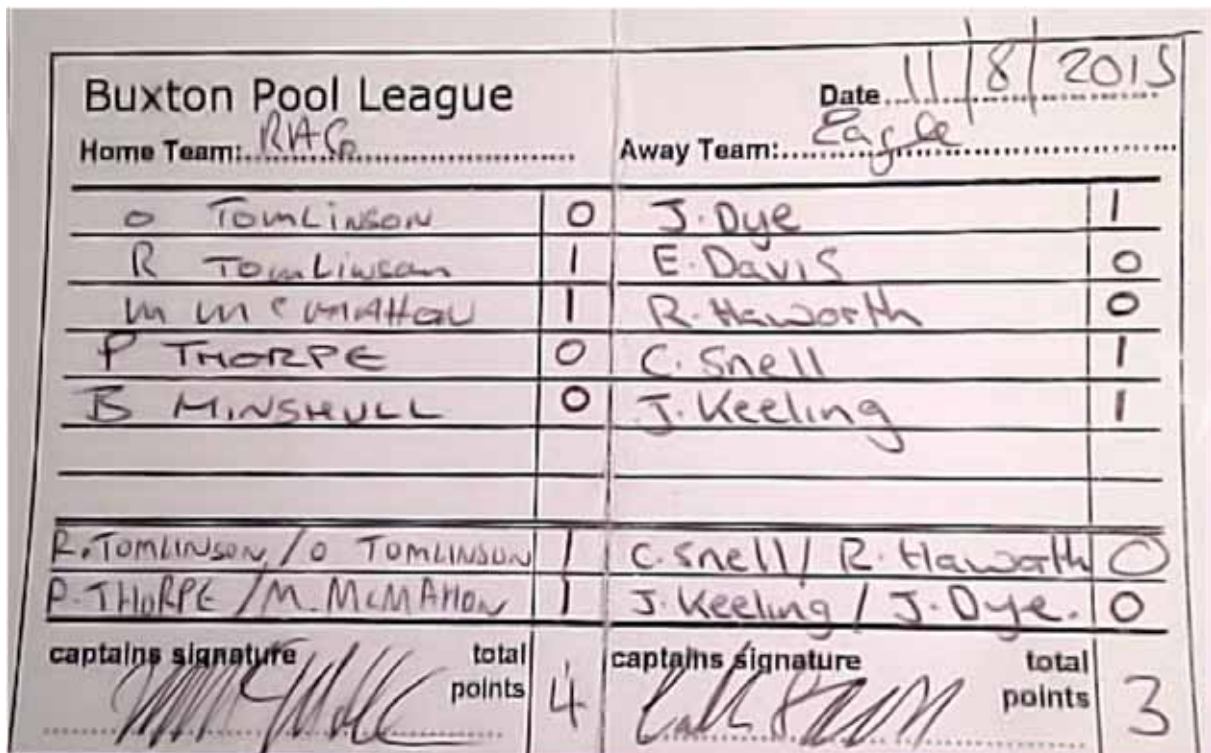 11/8/2015
Buxton Pool League Date
Home Team: Away Team: Eagle
O Tomlinson 0 J. Dye 1
R Tomlinson 1 E. Davis 0
M McMAHON 1 R. Haworth 0
P THORPE 0 C. Snell 1
B MINSHULL 0 J. Keeling 1
R. TOMLINSON / O TOMLINSON 1 C. Snell / R. Haworth 0
P. THORPE / M. McMAHON 1 J. Keeling / J. Dye. 0
captains signature total points 4 captains signature total points 3